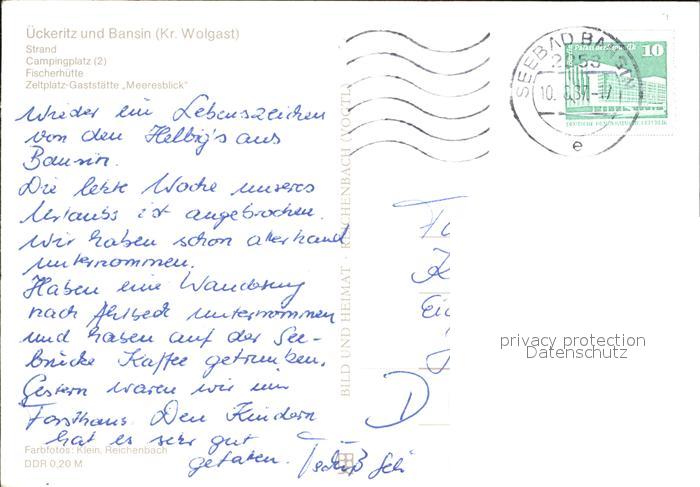 Ückeritz und Bansin (Kr. Wolgast)
Strand
Campingplatz (2)
Fischerhütte
Zeltplatz-Gaststätte „Meeresblick"
Wieder ein Lebenszeichen
von den Helbig's aus
Bansin.
Die letzte Woche unseres
Urlaubs ist angebrochen.
Wir haben schon allerhand
unternommen.
Haben eine Wanderung
nach Ahlbeck unternommen
und haben auf der See-
brücke Kaffee getrunken.
Gestern waren wir im
Forsthaus. Den Kindern
hat es sehr gut
gefallen. Tschüß
Farbfotos: Klein, Reichenbach
DDR 0,20 M
BILD UND HEIMAT · REICHENBACH (VOGTL)
SEEBAD BANSIN
2253
10. 8.87-17
e
Palast der Republik 10
DEUTSCHE DEMOKRATISCHE REPUBLIK
D
privacy protection
Datenschutz